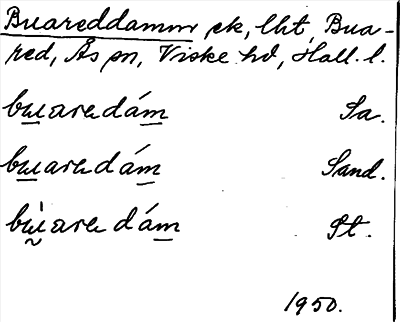 Buareddamm ek, lht, Bua-
red, Ås sn, Viske hd, Hall. l.
buaredám Sa.
buaredám Sand.
bùaredám St.
1950.